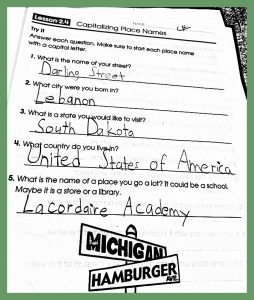 Lesson 2.4 Capitalizing Place Names
NAME
Try It
Answer each question. Make sure to start each place name
with a capital letter.
1. What is the name of your street?
Darling Street
2. What city were you born in?
Lebanon
3. What is a state you would like to visit?
South Dakota
4. What country do you live in?
United States of America
5. What is the name of a place you go a lot? It could be a school.
Maybe it is a store or a library.
Lacordaire Academy
MICHIGAN
HAMBURGER
AVE.